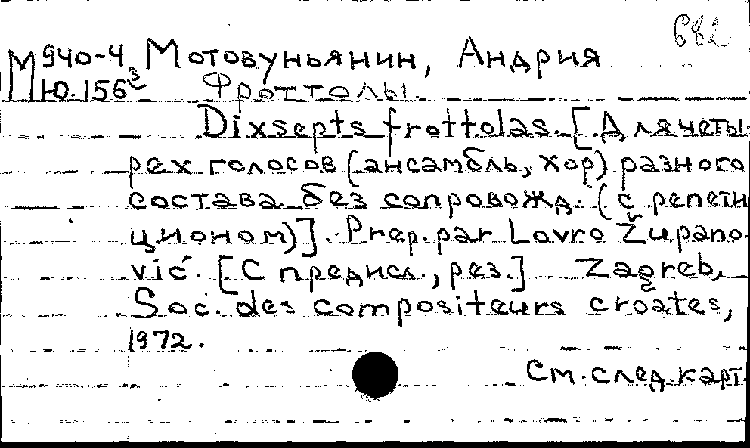 682
М 940-4 Мотовуньянин, Андрия
Ю.156³ Фроттолы.
Dixsepts frottolas. [Для четы-
рех голосов (ансамбль, хор) разного
состава без сопровожд. (с репети-
ционом)]. Prep. par Lovro Župano-
vić. [С предисл., рез.] Zagreb,
Soc. des compositeurs croates,
1972.
См. след. карт.